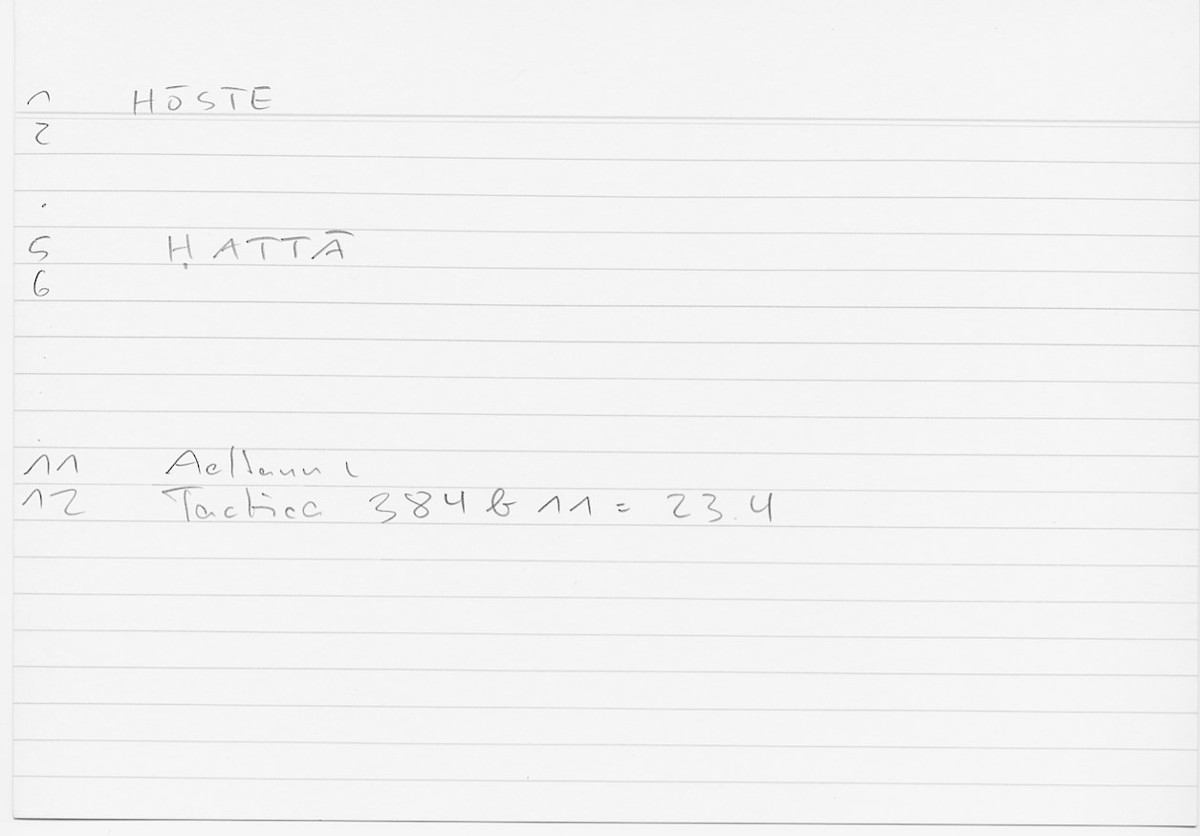 1 HŌSTE
2
.
5 ḤATTĀ
6
11
12 Tactica 384 b 11 = 23.4